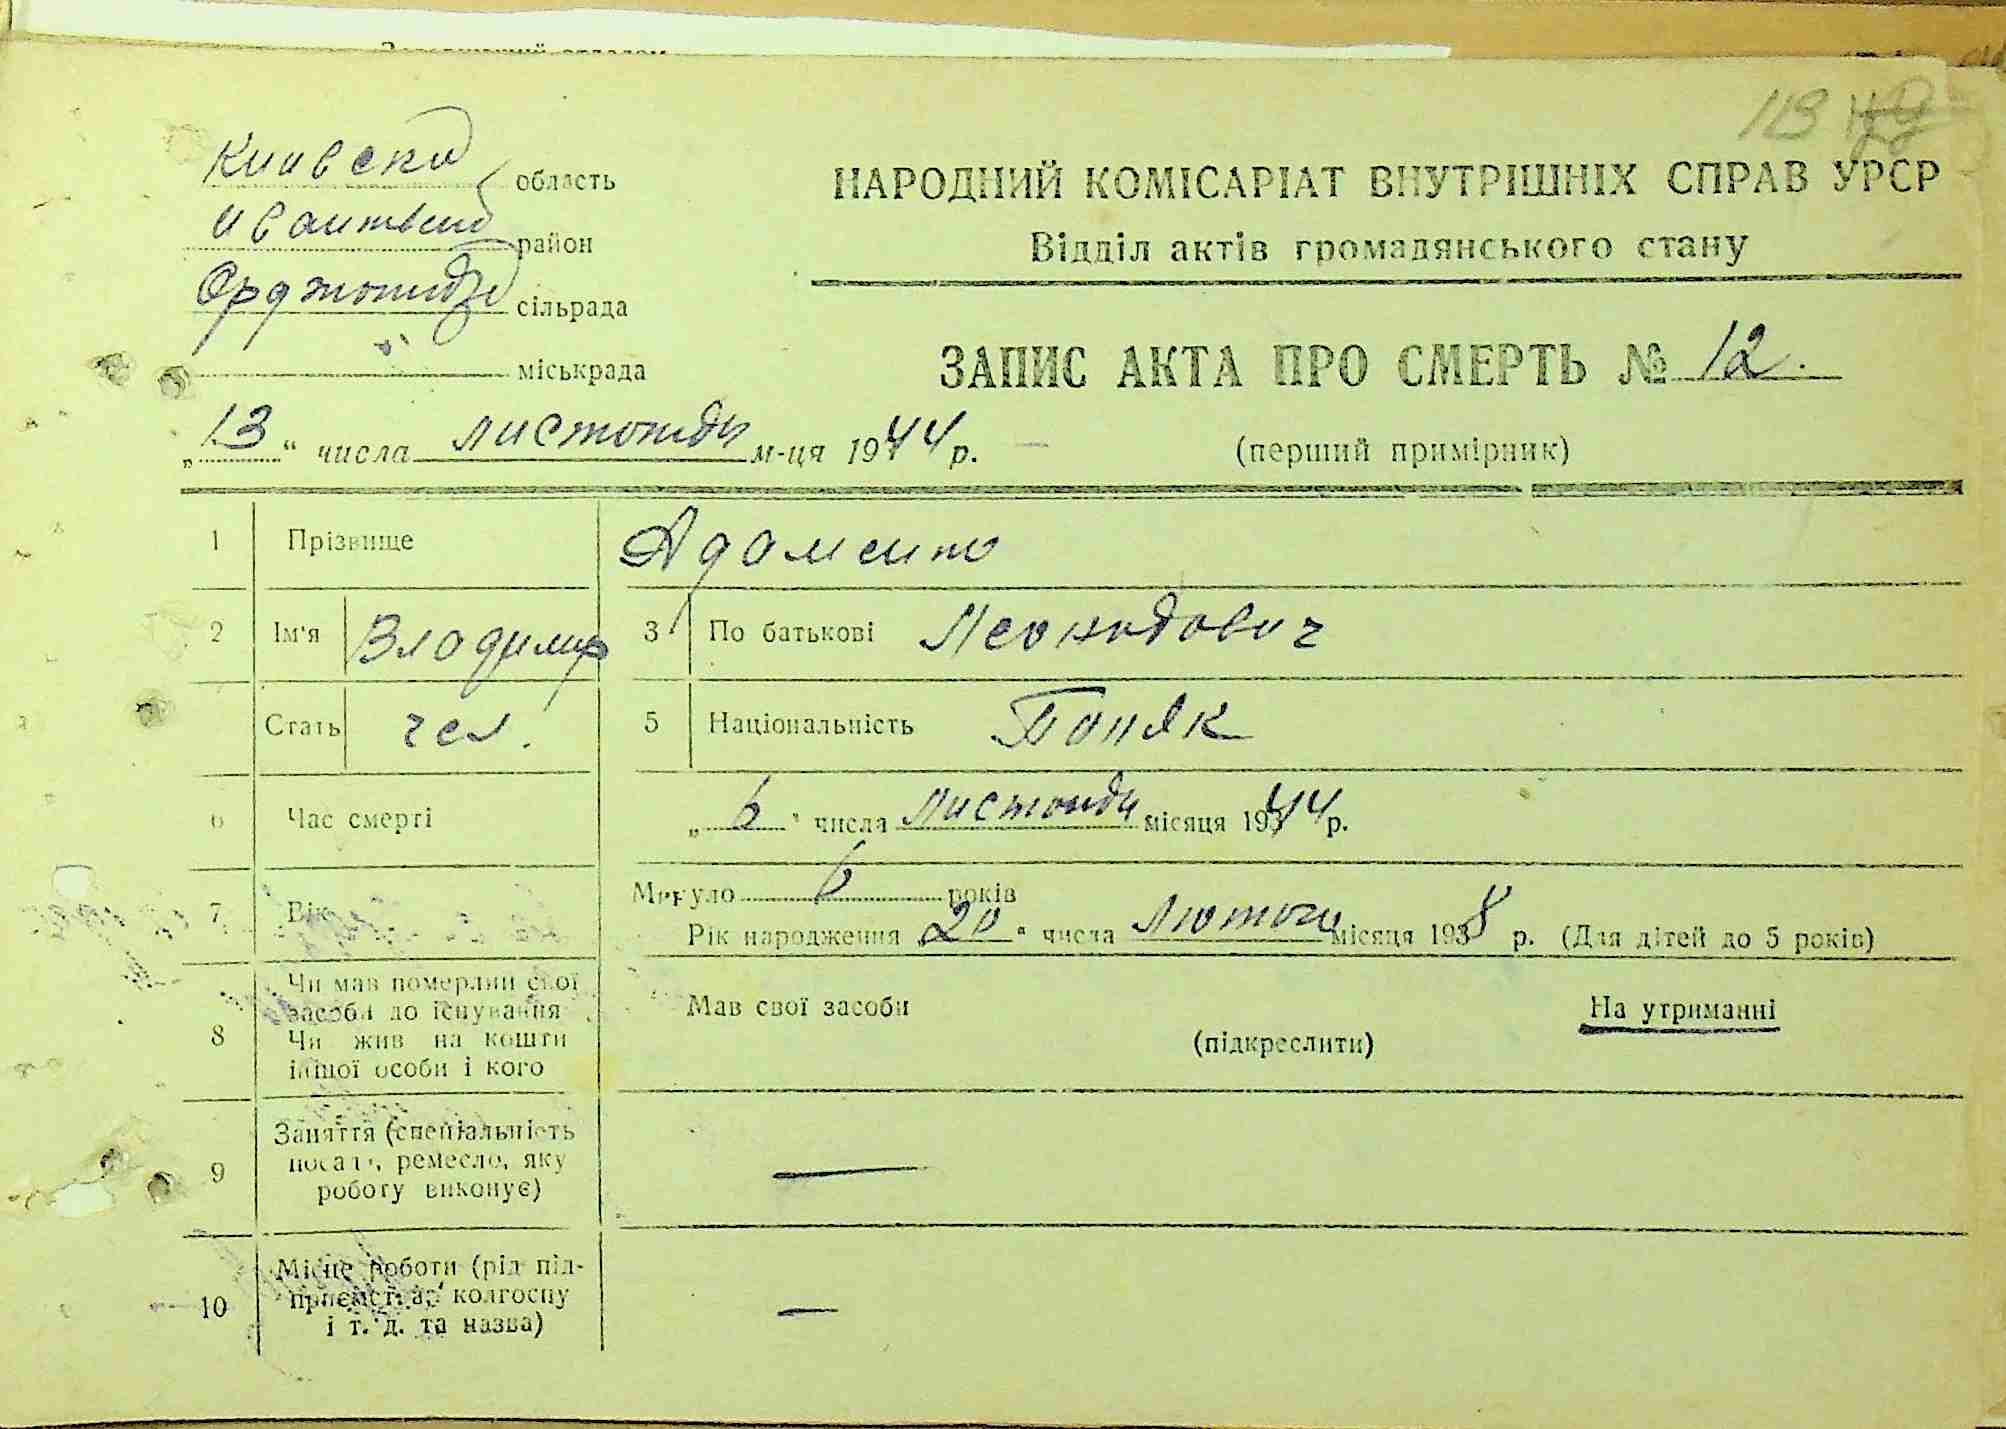 Київска область
Иванквский район
Орджонікідзе сільрада
" міськрада
НАРОДНИЙ КОМІСАРІАТ ВНУТРІШНІХ СПРАВ УРСР
Відділ актів громадянського стану
ЗАПИС АКТА ПРО СМЕРТЬ № 12.
„13“ числа листопада м-ця 1944 р.
(перший примірник)
1 Прізвище Адаменко
2 Ім'я Владимир 3 По батькові Леонидович
Стать чел. 5 Національність Поляк
6 Час смерті „6“ числа листопада місяця 1944 р.
7 Вік Минуло 6 років
Рік народження 20 " числа лютого місяця 1938 р. (Для дітей до 5 років)
8 Чи мав померлий свої
засоби до існування
Чи жив на кошти
іншої особи і кого
Мав свої засоби На утриманні
(підкреслити)
9 Заняття (спеціальність
посада, ремесло, яку
роботу виконує) —
10 Місце роботи (рід під-
приємства, колгоспу
і т. д. та назва) —